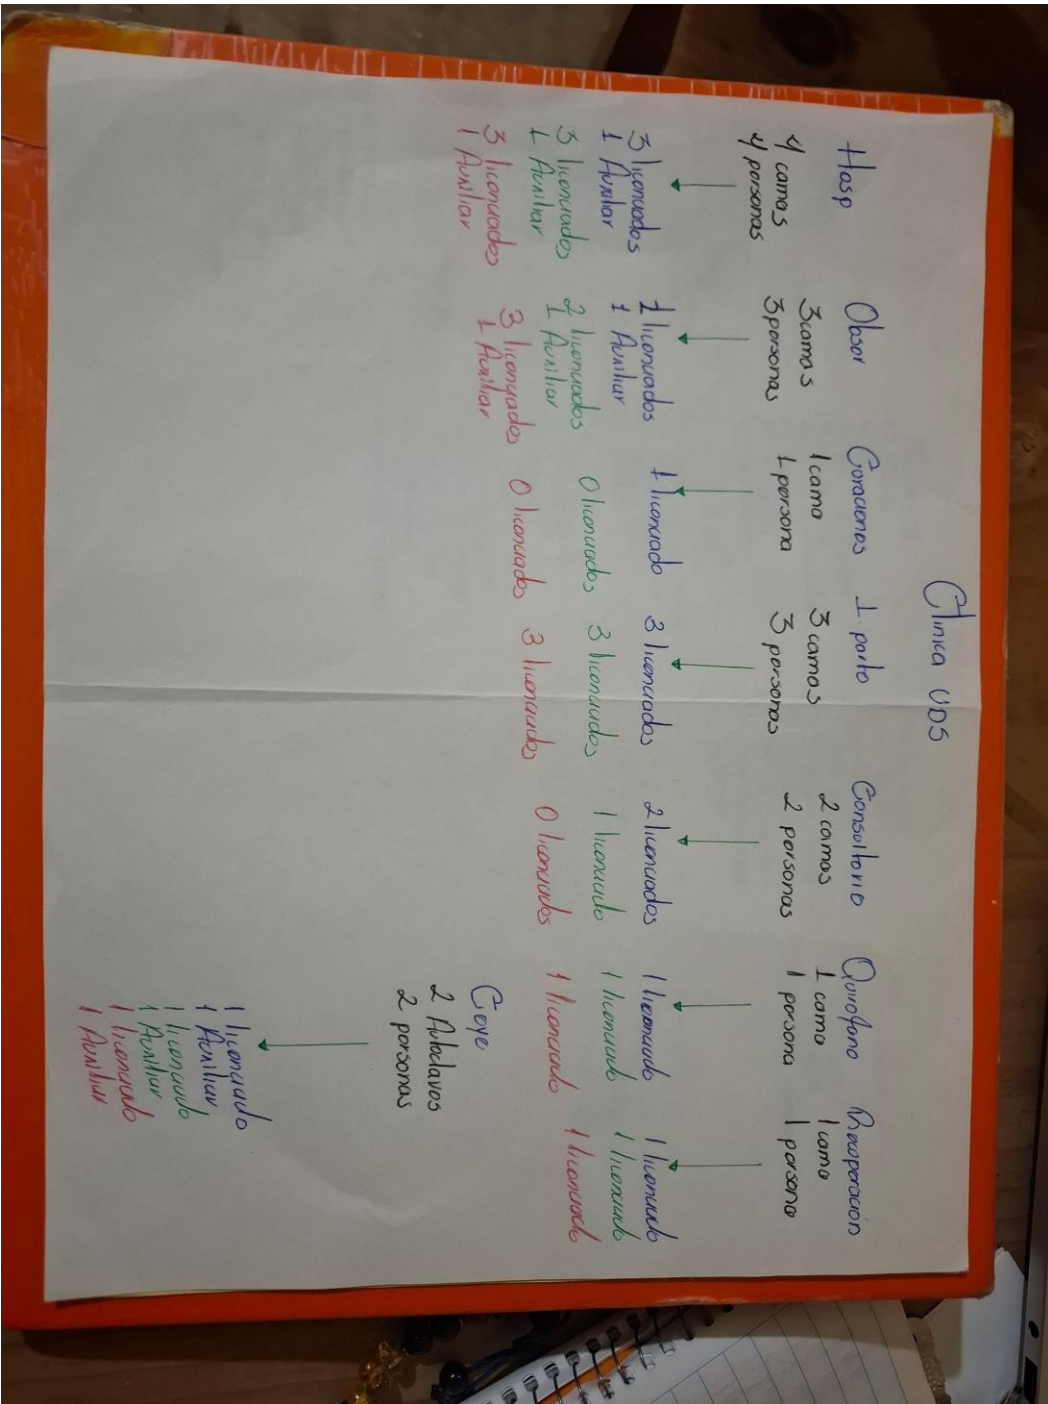 Clinica UDS
Hosp
4 camas
4 personas
3 licenciados
1 Auxiliar
3 licenciados
1 Auxiliar
3 licenciados
1 Auxiliar
Obser
3 camas
3 personas
2 licenciados
1 Auxiliar
2 licenciados
1 Auxiliar
3 licenciados
1 Auxiliar
Curaciones
1 cama
1 persona
1 licenciado
0 licenciados
0 licenciados
1 parto
3 camas
3 personas
3 licenciados
3 licenciados
3 licenciados
Consultorio
2 camas
2 personas
2 licenciados
1 licenciado
0 licenciados
Quirofano
1 cama
1 persona
1 licenciado
1 licenciado
1 licenciado
Recuperación
1 cama
1 persona
1 licenciado
1 licenciado
1 licenciado
Ceye
2 Autoclaves
2 personas
1 licenciado
1 Auxiliar
1 licenciado
1 Auxiliar
1 licenciado
1 Auxiliar